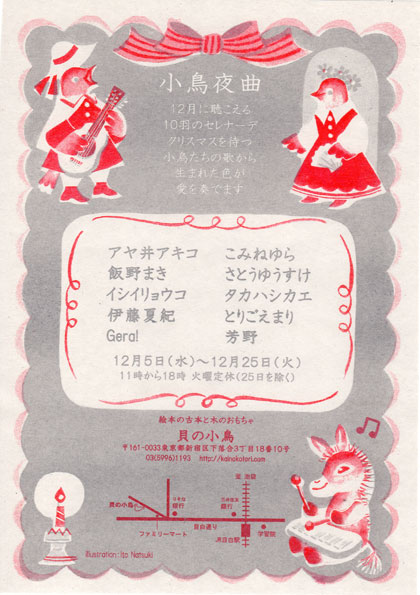 小鳥夜曲
12月に聴こえる
10羽のセレナーデ
クリスマスを待つ
小鳥たちの歌から
生まれた色が
愛を奏でます
アヤ井アキコ
飯野まき
イシイリョウコ
伊藤夏紀
Gera!
こみねゆら
さとうゆうすけ
タカハシカエ
とりごえまり
芳野
12月5日(水)〜12月25日(火)
11時から18時 火曜定休(25日を除く)
絵本の古本と木のおもちゃ
貝の小鳥
〒161-0033東京都新宿区下落合3丁目18番10号
03(5996)1193 http://kainokotori.com
貝の小鳥
銀行
銀行
至 池袋
目白通り
ファミリーマート
JR目白駅
学習院
Illustration: Ito Natsuki